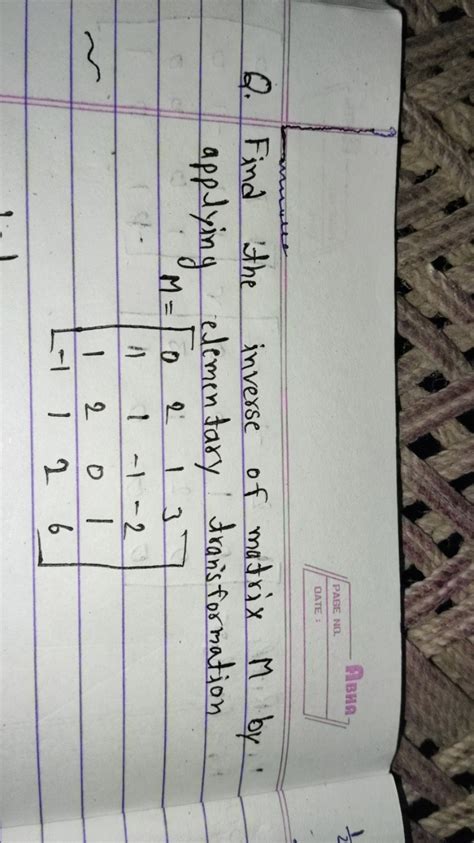 ABHA
PAGE NO.
DATE :
Q. Find the inverse of matrix M by
applying elementary transformation
M = 0 2 1 3
1 1 -1 -2
1 2 0 1
-1 1 2 6